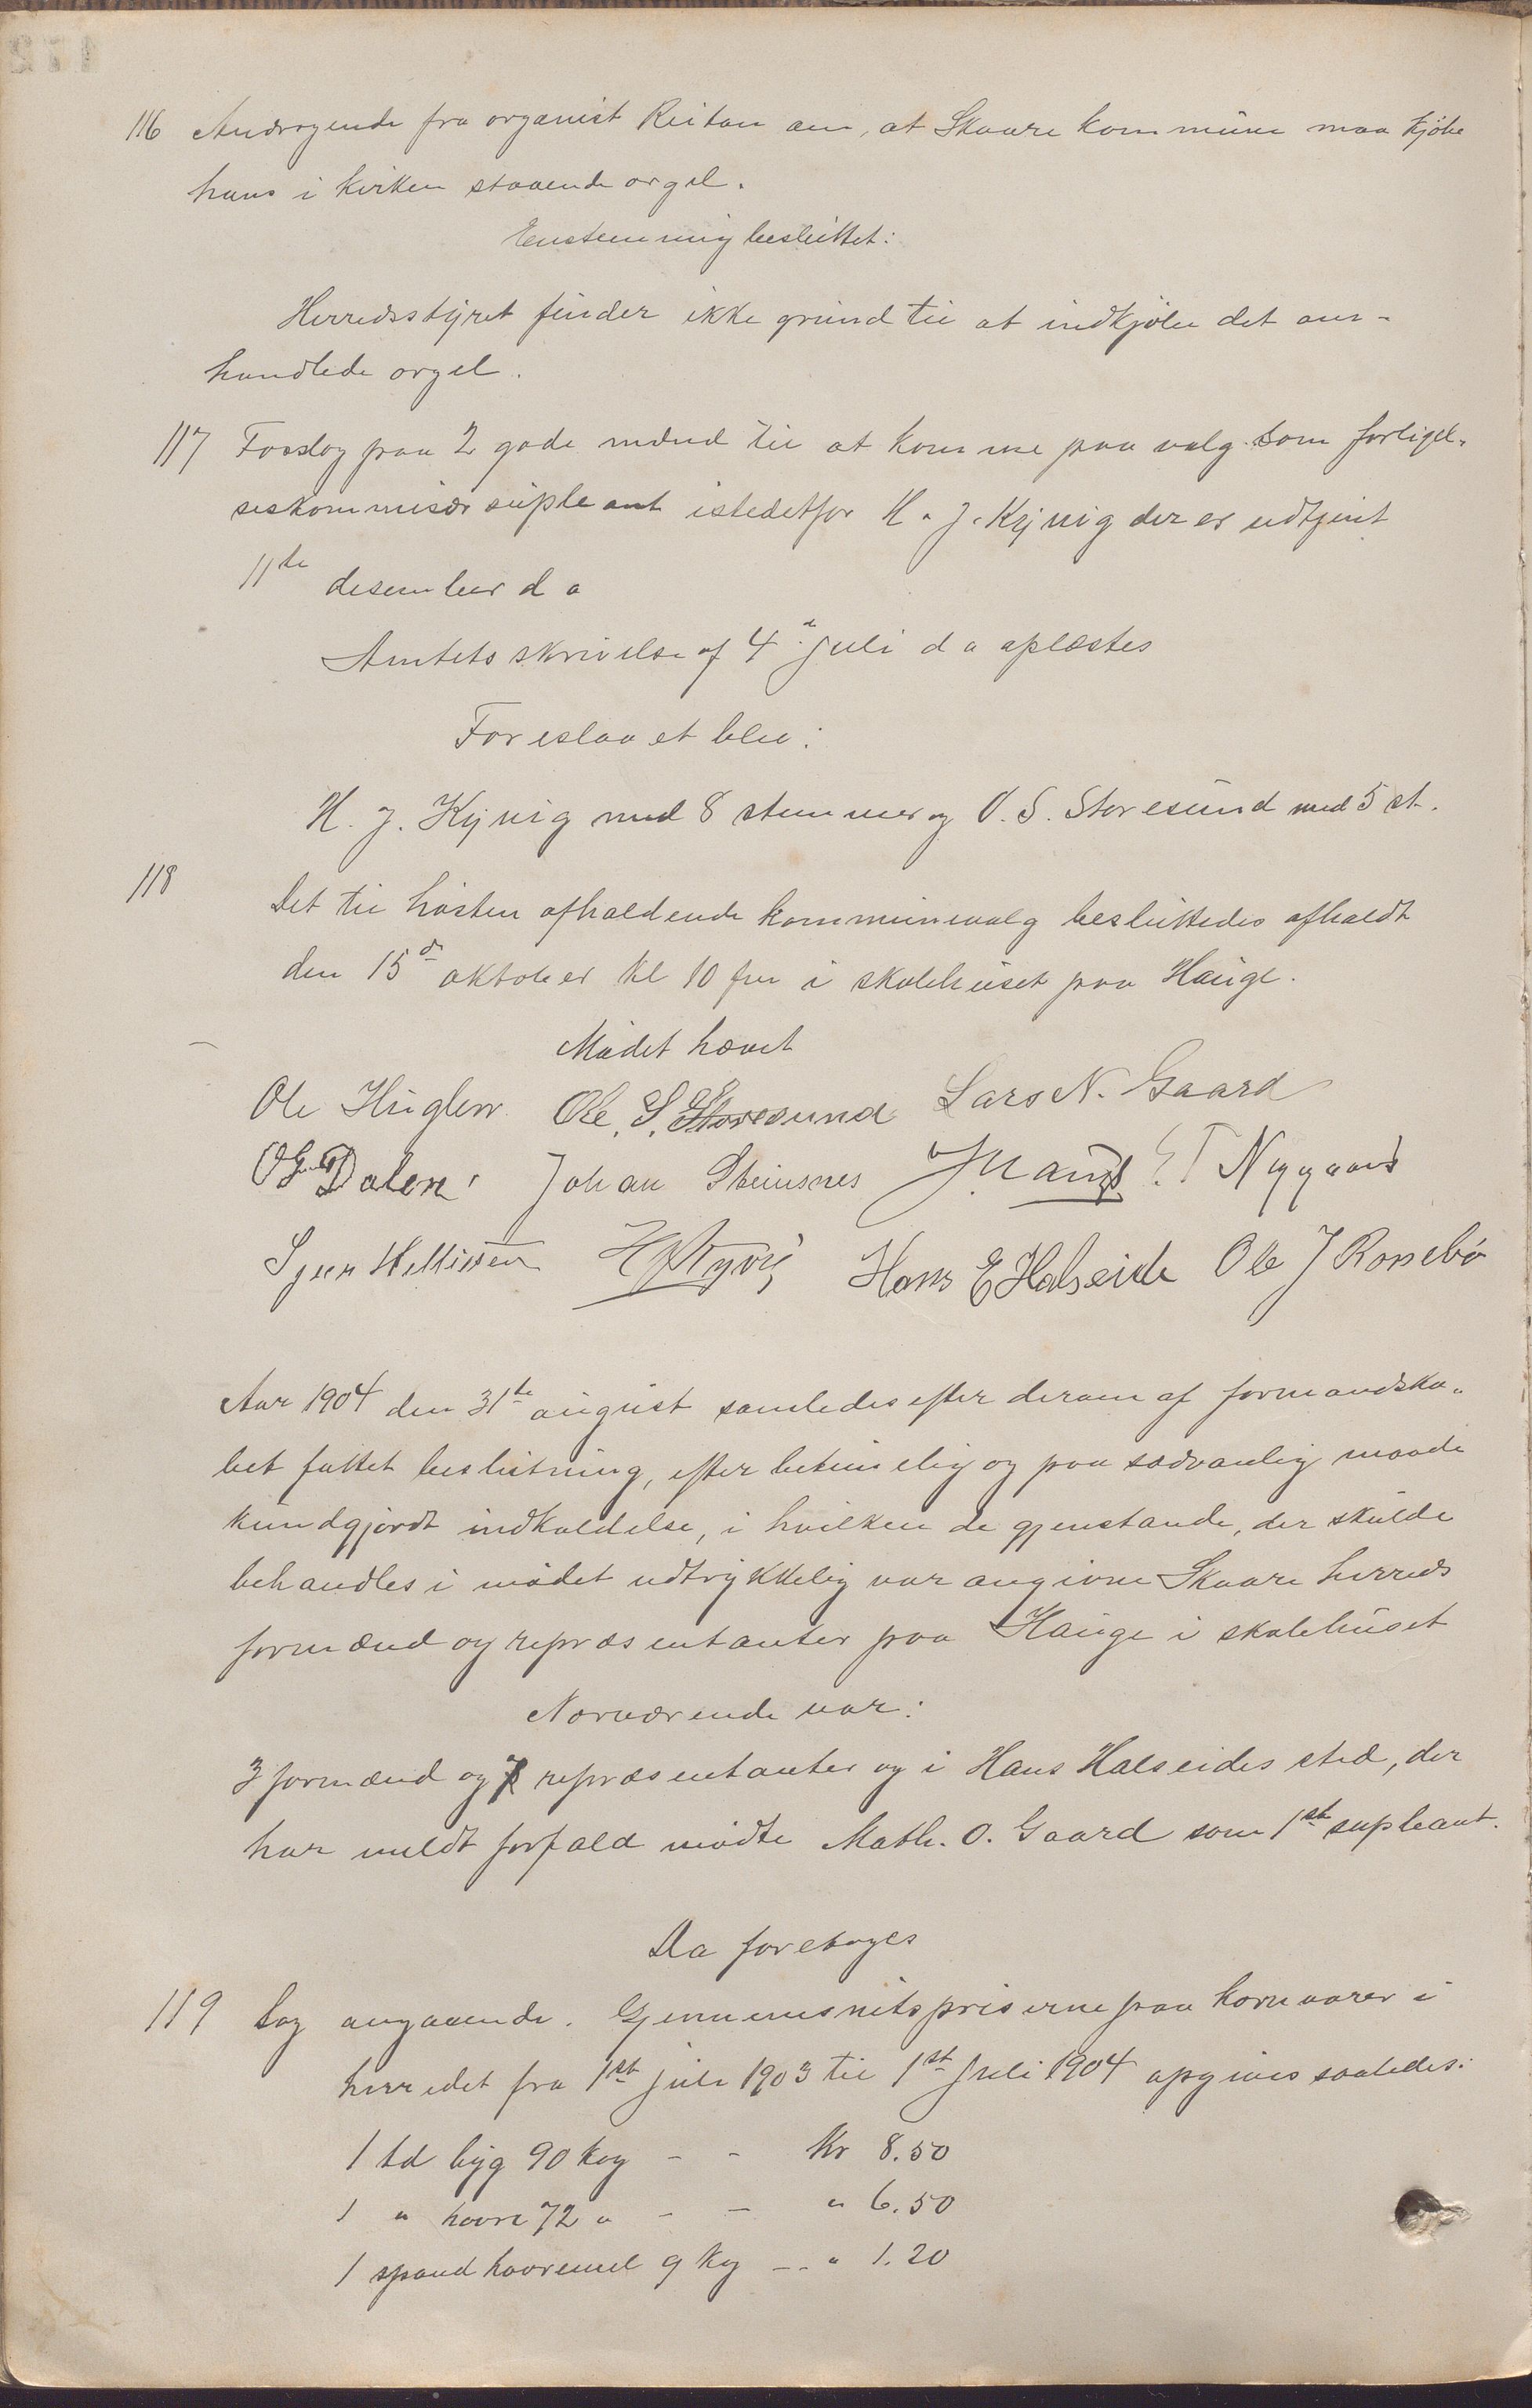 116 Andragende fra organist Reitan om, at Skaare kommune maa kjöbe
hans i kirken staaende orgel.
Enstemmig besluttet:
Herredsstyret finder ikke grund til at indkjöbe det om-
handlede orgel.
117 Forslag paa 2 gode mænd til at komme paa valg som forligel-
seskommisær supleant istedetfor H. J. Kyvig der er udtjent
11te desember d a
Amtets skrivelse af 4de juli d a oplæstes
Foreslaaet blev:
H. J. Kyvig med 8 stemmer og O. S. Storesund med 5 st.
118 Det til høsten afholdende kommunevalg besluttedes afholdt
den 15de oktober kl 10 fm i skolehuset paa Hauge.
Mødet hævet
Ole Huglen Ole. S. Storesund Lars N. Gaard
Dalen. Johan Steinsnes E T Nygaard
H J Kyvig Hans E Halseide Ole J Rossebø
Aar 1904 den 31te august samledes efter derom af formandska-
bet fattet beslutning, efter betimelig og paa sædvanlig maade
kundgjordt indkaldelse, i hvilken de gjenstande, der skulde
behandles i mødet udtrykkelig var angivne Skaare herreds
formænd og repræsentanter paa Hauge i skolehuset
Nærværende var:
3 formænd og 7 repræsentanter og i Hans Halseides sted, der
har meldt forfald mødte Math. O. Gaard som 1st supleant.
Da foretoges
119 Sag angaaende. Gjennemsnitspriserne paa kornvarer i
herredet fra 1st juli 1903 til 1st Juli 1904 opgives saaledes:
1 td byg 90 kog - - Kr 8.50
1 " havre 72 " - - " 6.50
1 spand havremel 9 kg - - " 1.20